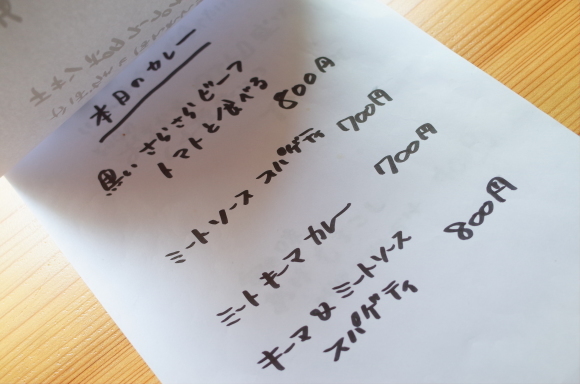 本月のカレー
黒いさらさらビーフ
トマトと食べる 800円
ミートソース スパゲティ 700円
ミートキーマカレー 700円
キーマ&ミートソース
スパゲティ 800円